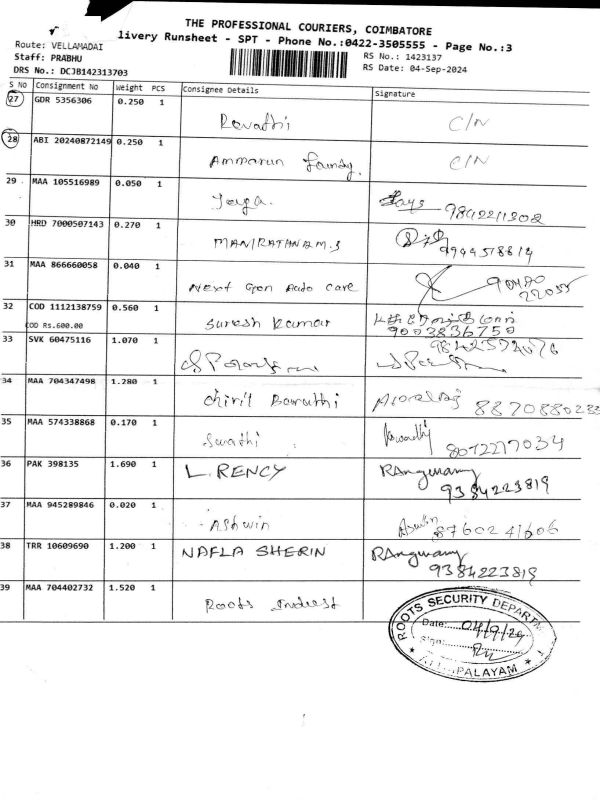 THE PROFESSIONAL COURIERS, COIMBATORE
livery Runsheet - SPT - Phone No.:0422-3505555 - Page No.:3
Route: VELLAMADAI
Staff: PRABHU
DRS No.: DCJB142313703
RS No.: 1423137
RS Date: 04-Sep-2024
S No Consignment No Weight PCS Consignee Details Signature
27 GDR 5356306 0.250 1
Revathi C/N
28 ABI 20240872149 0.250 1
Ammarun C/N
29 MAA 105516989 0.050 1
9842211302
30 HRD 7000507143 0.270 1
MANIRATHNAM.S
31 MAA 866660058 0.040 1
Next Gen Auto care
32 COD 1112138759 0.560 1
COD Rs.600.00
Suresh Kumar 9003836750
33 SVK 60475116 1.070 1
34 MAA 704347498 1.280 1
Barathi 8870880233
35 MAA 574338868 0.170 1
Swathi 8072217034
36 PAK 398135 1.690 1
L.RENCY RAngwamy
9384223819
37 MAA 945289846 0.020 1
Ashwin Aswin
8760241606
38 TRR 10609690 1.200 1
NAFLA SHERIN RAngwamy
9384223819
39 MAA 704402732 1.520 1
Roots Indust
ROOTS SECURITY DEPARTM
Date: 04/9/24
Sign:
PALAYAM